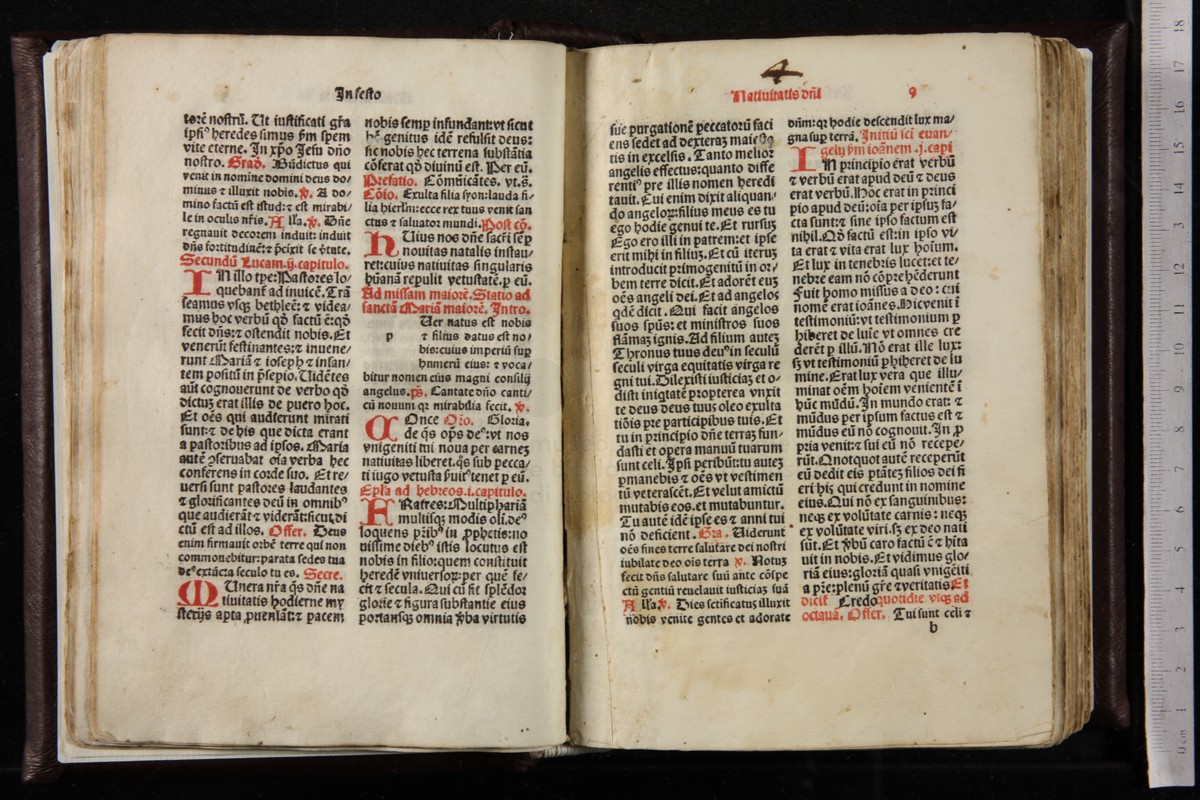 In festo
torē nostrū. Ut iustificati gr̄a
ipsiꝰ heredes simus s̄m spem
vite eterne. In xp̄o Jesu dn̄o
nostro. Grad. Bn̄dictus qui
venit in nomine domini deus do/
minus ⁊ illuxit nobis. ℣. A do/
mino factū est istud: ⁊ est mirabi/
le in oculis nr̄is. Alla. ℣. Dn̄e
regnauit decorem induit: induit
dn̄s fortitudinē: ⁊ p̄cixit se v̓tute.
Secundū Lucam .ij. capitulo.
IN illo tp̄e: Pastores lo/
quebant̄ ad inuicē. Trā
seamus vsqꝫ bethleē: ⁊ videa/
mus hoc verbū qd̄ factū ē: qd̄
fecit dn̄s: ⁊ ostendit nobis. Et
venerūt festinantes: ⁊ inuene/
runt Mariā ⁊ ioseph ⁊ infan/
tem positū in p̄sepio. Uidētes
aūt cognouerunt de verbo qd̄
dictuꝫ erat illis de puero hoc.
Et oēs qui audierunt mirati
sunt: ⁊ de his que dicta erant
a pastoribus ad ipsos. Maria
autē ꝯseruabat oīa verba hec
conferens in corde suo. Et re/
uersi sunt pastores laudantes
⁊ glorificantes deū in omnibꝰ
que audierāt ⁊ viderāt: sicut di
ctū est ad illos. Offer. Deus
enim firmauit orbē terre qui non
commonebitur: parata sedes tua
deꝰ ex tūc: a seculo tu es. Secre.
MUnera nr̄a q̄s dn̄e na
tiuitatis hodierne my
sterijs apta ꝓueniāt: ⁊ pacem
nobis semꝑ infundant: vt sicut
hō genitus idē refulsit deus:
sic nobis hec terrena substātia
cōferat qd̄ diuinū est. Per eū.
Prefatio. Cōmūicātes. vt. s̄.
Cōio. Exulta filia syon: lauda fi/
lia hierlm̄: ecce rex tuus venit san
ctus ⁊ saluator mundi. Post cō.
HUius nos dn̄e sacr̄i sēꝑ
nouitas natalis instau/
ret: cuius natiuitas singularis
hūanā repulit vetustatē. ꝑ eū.
Ad missam maiorē. Statio ad
sanctā Mariā maiorē. Intro.
Uer natus est nobis
p ⁊ filius datus est no/
bis: cuius imperiū suꝑ
hmnerū eius: ⁊ voca/
bitur nomen eius magni consilij
angelus. ps̄. Cantate dn̄o canti/
cū nouum: qꝛ mirabilia fecit. ℣.
COnce Or̄o. Gloria.
de q̄s op̄s deꝰ: vt nos
vnigeniti tui noua per carneꝫ
natiuitas liberet. q̄s sub pecca/
ti iugo vetusta ẜuit̓ tenet ꝑ eū.
Epl̄a ad hebreos. i. capitulo.
FRatres: Multiphariā
multisqꝫ modis olī. deꝰ
loquens pr̄ibꝰ in ꝓphetis: no
uissime diebꝰ istis locutus est
nobis in filio: quem constituit
heredē vniuersoꝝ: per quē fe/
cit ⁊ secula. Qui cū sit splēdor
glorie ⁊ figura substantie eius
portansqꝫ omnia ꝟba virtutis
4
Natiuitatis dn̄i 9
sue purgationē peccatorū faci
ens sedet ad dexteraꝫ maiesta
tis in excelsis. Tanto melior
angelis effectus: quanto diffe
rentiꝰ pre illis nomen heredi
tauit. Cui enim dixit aliquan/
do angeloꝝ: filius meus es tu
ego hodie genui te. Et rursuꝫ
Ego ero illi in patrem: et ipse
erit mihi in filiuꝫ. Et cū iteruꝫ
introducit primogenitū in or/
bem terre dicit. Et adorēt euꝫ
oēs angeli dei. Et ad angelos
qdē dicit. Qui facit angelos
suos spūs: et ministros suos
flāmaꝫ ignis. Ad filium auteꝫ
Thronus tuus deuꝰ in seculū
seculi virga equitatis virga re
gni tui. Dilexisti iusticiaꝫ et o/
disti iniqtatē propterea vnxit
te deus deus tuus oleo exulta
tiōis pre participibus tuis. Et
tu in principio dn̄e terraꝫ fun/
dasti et opera manuū tuarum
sunt celi. Ipsi peribūt: tu auteꝫ
ꝑmanebis ⁊ oēs vt vestimen
tū veterascēt. Et velut amictū
mutabis eos. et mutabuntur.
Tu autē idē ipse es ⁊ anni tui
nō deficient. Gra. Uiderunt
oēs fines terre salutare dei nostri
iubilate deo ois terra ℣. Notuꝫ
fecit dn̄s salutare suū ante cōspe
ctū gentiū reuelauit iusticiaꝫ suā
Alla. ℣. Dies sctificatus illuxit
nobis venite gentes et adorate
dn̄m: qꝛ hodie descendit lux ma/
gna suꝑ terrā. Initiū sc̄i euan/
gelij s̄m ioānem .j. capi
IN principio erat verbū
⁊ verbū erat apud deū ⁊ deus
erat verbū. Hoc erat in princi
pio apud deū: oīa per ipsuꝫ fa/
cta sunt: ⁊ sine ipso factum est
nihil. Qd̄ factū est: in ipso vi/
ta erat ⁊ vita erat lux hoīum.
Et lux in tenebris lucet: et te/
nebre eam nō cōprehēderunt
Fuit homo missus a deo: cui
nomē erat ioānes. Hic venit ī
testimoniū: vt testimonium ꝑ
hiberet de luīe vt omnes cre
derēt ꝑ illū. Nō erat ille lux:
sꝫ vt testimoniū ꝑhiberet de lu
mine. Erat lux vera que illu/
minat oēm hoīem venientē ī
hūc mūdū. In mundo erat: ⁊
mūdus per ipsum factus est ⁊
mūdus eū nō cognouit. In ꝓ
pria venit: ⁊ sui eū nō recepe/
rūt. Quotquot autē receperūt
eū dedit eis ptātēꝫ filios dei fi
eri hiꝫ qui credunt in nomine
eius. Qui nō ex sanguinibus:
neqꝫ ex volūtate carnis: neqꝫ
ex volūtate viri. sꝫ ex deo nati
sūt. Et ꝟbū caro factū ē ⁊ hīta
uit in nobis. Et vidimus glo/
riā eius: gloriā quasi vnigēiti
a pr̄e: plenū gr̄e ⁊ veritatis. Et
dicit̄ Credo quotidie vsqꝫ ad
octauā. Offer. Tui sunt celi ⁊
b
0 cm 1 2 3 4 5 6 7 8 9 10 11 12 13 14 15 16 17 18